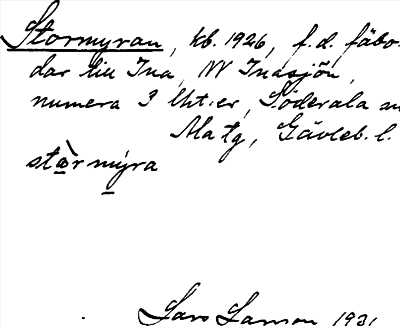 Stormyran, kb. 1926, f.d. fäbo-
dar till Ina, NV Inasjön,
numera 3 lht:er, Söderala
Ala tg, Gävleb. l.
stòrmyra
Lars Larson 1931